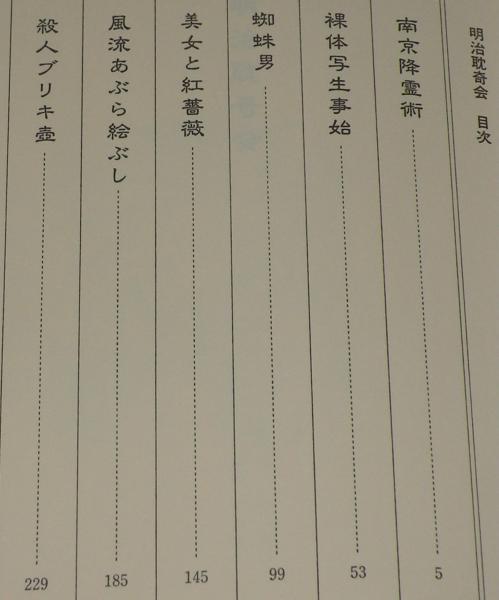 明治耽奇会 目次
南京降霊術 5
裸体写生事始 53
蜘蛛男 99
美女と紅薔薇 145
風流あぶら絵ぶし 185
殺人ブリキ壺 229